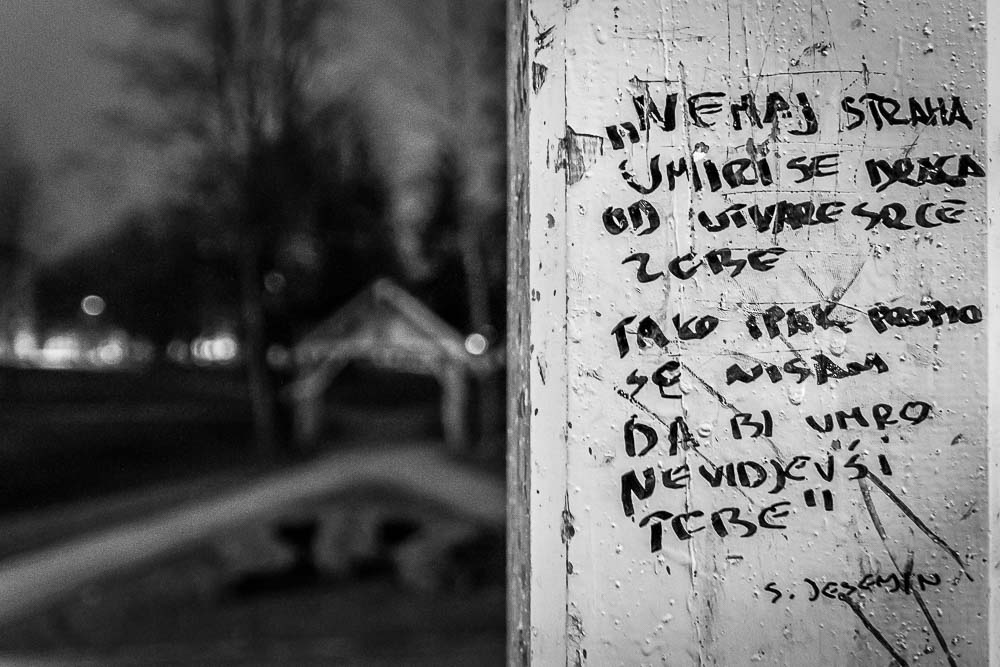 „NEMAJ STRAHA
UMIRI SE DRAGA
OD UTVARE SRCE
ZEBE
TAKO IPAK PROPIO
SE NISAM
DA BI UMRO
NEVIDJEVŠI
TEBE"
S. JESENJIN